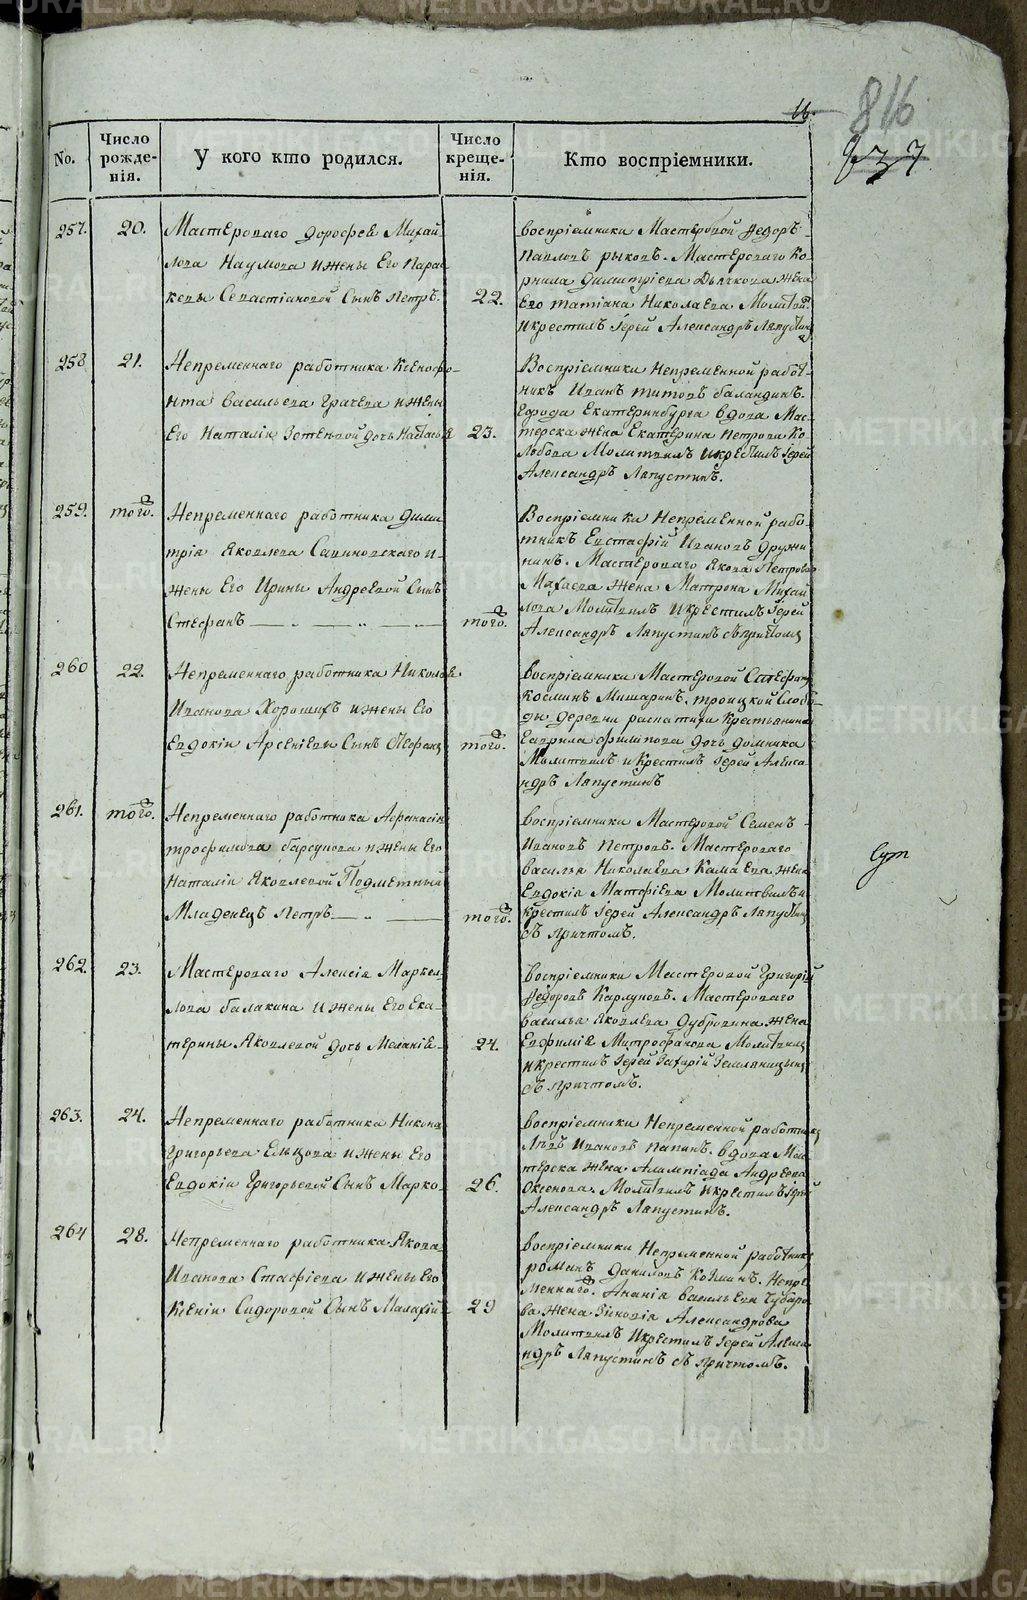 816
11.
937
No.
Число рожденія.
У кого кто родился.
Число крещенія.
Кто воспріемники.
257.
20.
Мастероваго Дорофея Михай
лова Наумова и жены Его Парас
кевы Севастіановой Сынъ Петръ.
22.
воспріемники Мастеровой Федоръ
Павловъ рыковъ. Мастероваго Ко
рнила Димитріева Дьячкова жена
Его татіана Николаева Молитвой
и крестилъ Іерей Александръ Ляпустинъ
258
21.
Непременнаго работника Ксенофо-
нта Васильева Грачева и жены
Его Наталіи Зотеевой дочь Настасья
23.
Воспріемники Непременной работ
никъ Иванъ титовъ баландинъ.
Города Екатеринбурга вдова Мас-
терска жена Екатерина Петрова Ко
лобова Молитвилъ и крестилъ Іерей
Александръ Ляпустинъ.
259.
того.
Непременнаго работника Дими
трія Яковлева Савиновскаго и
жены Его Ирины Андреевой Сынъ
Стефанъ
того.
Воспріемники Непременной рабо-
тникъ Евстафій Ивановъ Дружи
нинъ. Мастероваго Якова Петрова
жена Матрона Михай
лова Молитвилъ и крестилъ Іерей
Александръ Ляпустинъ съ причтомъ
260
22.
Непременнаго работника Николая
Иванова Хорошихъ и жены Его
Евдокіи Арсеніевы Сынъ
того.
воспріемники Мастеровой Стефанъ
Косминъ Мишаринъ. троицкой Слобо
ды деревни распатихи Крестьянина
Гаврила филипова дочь домника
Молитвилъ и Крестилъ Іерей Алекса
ндръ Ляпустинъ
261.
того.
Непременнаго работника Афанасія
трофимова барсукова и жены Его
Наталіи Яковлевой Подметный
Младенецъ Петръ
того.
воспріемники Мастеровой Семенъ
Ивановъ Петровъ. Мастероваго
василья Николаева Камаева жена
Евдокія Матфіева Молитвилъ и
крестилъ Іерей Александръ Ляпустинъ
съ причтомъ.
262.
23.
Мастероваго Алексія Маркел
лова балакина и жены Его Ека-
терины Яковлевой дочь Меланія
24.
воспріемники Мастеровой Григорій
Федоровъ Карпуковъ. Мастероваго
василья Яковлева Дубровина жена
Евфимія Митрофанова Молитвилъ
и крестилъ Іерей Захарій Земляницынъ
съ причтомъ.
263.
24.
Непременнаго работника Никона
Григорьева Ельцова и жены Его
Евдокіи Григорьевой Сынъ Марко
26.
воспріемники Непременной работникъ
Левъ Ивановъ Папинъ. вдова Мас
терска жена Алимпіада Андреева
Оксенова. Молитвилъ и крестилъ Іерей
Александръ Ляпустинъ.
264
28.
Непременнаго работника Якова
Иванова Стафіева и жены Его
Ксеніи Сидоровой Сынъ Малахій
29
воспріемники Непременной работникъ
романъ Даниловъ Козминъ. Непре
меннаго. Ананія васильева Чубаро
ва жена Зиновія Александрова
Молитвилъ и крестилъ Іерей Алекса
ндръ Ляпустинъ съ причтомъ.
METRIKI.GASO-URAL.RU